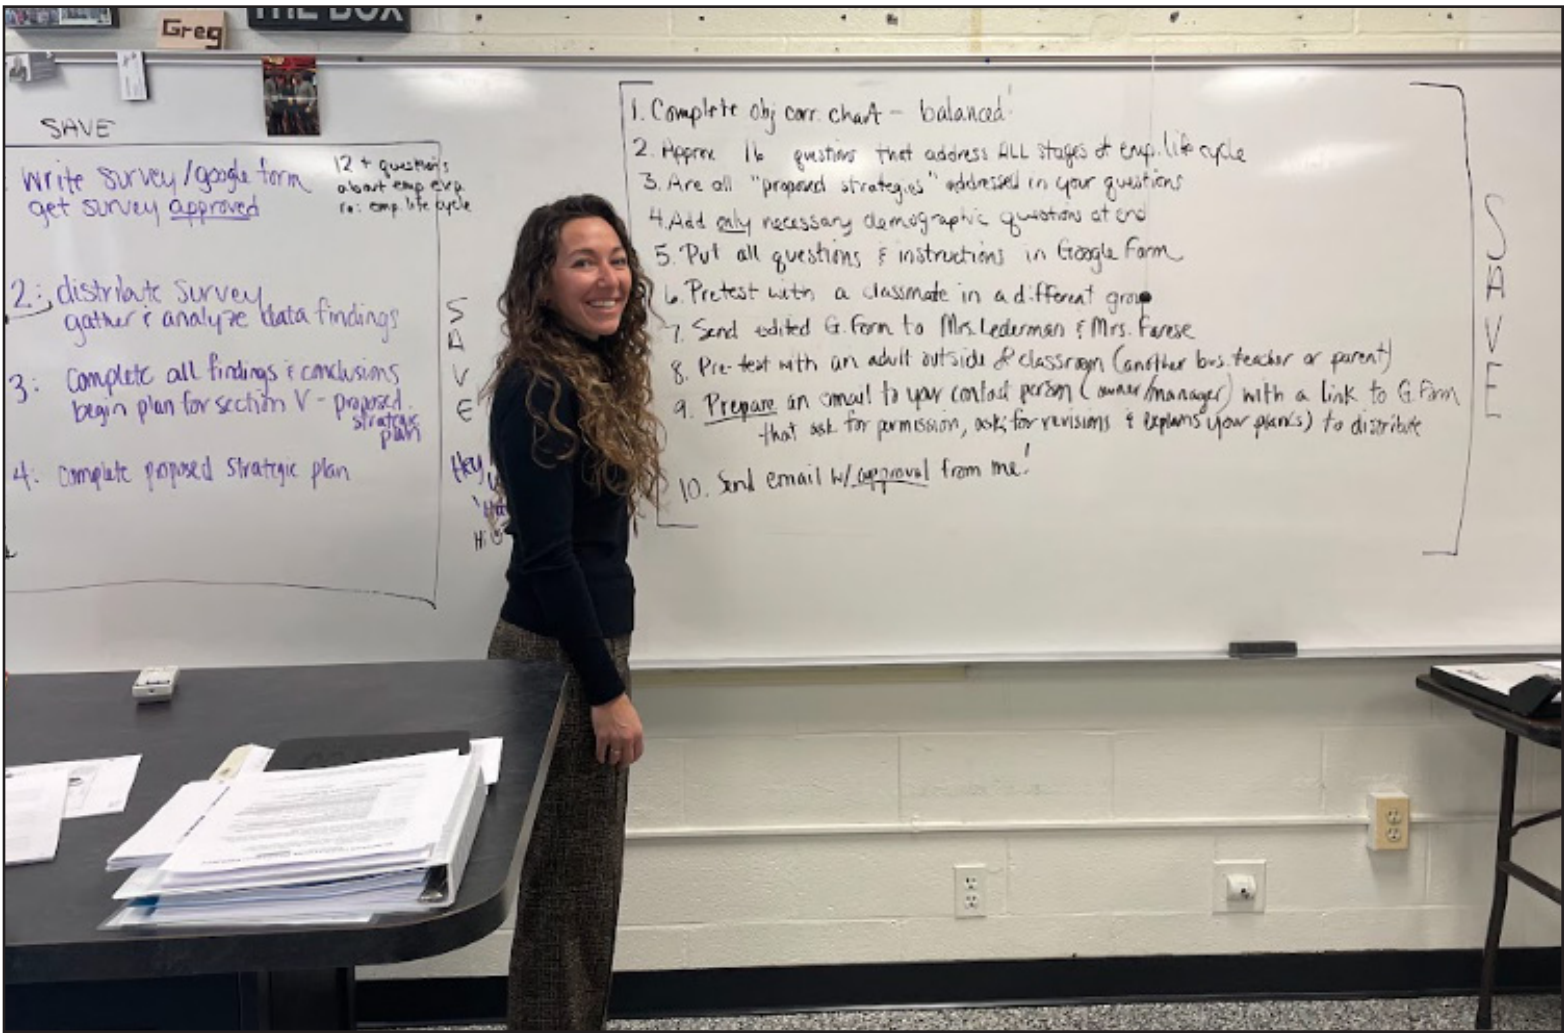 THE BOX
Greg
SAVE
Write survey/google form
get survey approved
12 + questions
about emp exp.
re: emp. life cycle
2: distribute survey
gather & analyze data findings
3: Complete all findings & conclusions
begin plan for section V - proposed
strategic
plan
4: complete proposed strategic plan
SAVE
Hey
Hi
1. Complete obj corr. chart - balanced!
2. Approx 16 questions that address ALL stages of emp. life cycle
3. Are all "proposed strategies" addressed in your questions
4. Add only necessary demographic questions at end
5. Put all questions & instructions in Google Form
6. Pretest with a classmate in a different group
7. Send edited G. Form to Mrs. Lederman & Mrs. Farese
8. Pre-test with an adult outside of classroom (another bus. teacher or parent)
9. Prepare an email to your contact person (owner/manager) with a link to G. Form
that ask for permission, asks for revisions & explains your plan(s) to distribute
10. Send email w/ approval from me!
SAVE